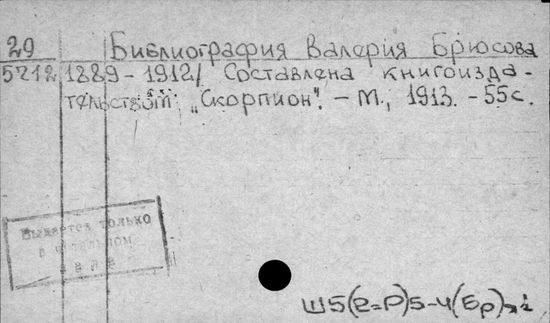 29
Библиография Валерия Брюсова
5212 1889-1912/ Составлена книгоизда-
тельством "Скорпион". - М., 1913. - 55с.
Выдается только
в читальном
зале
Ш5(2=Р)5-4(Бр)